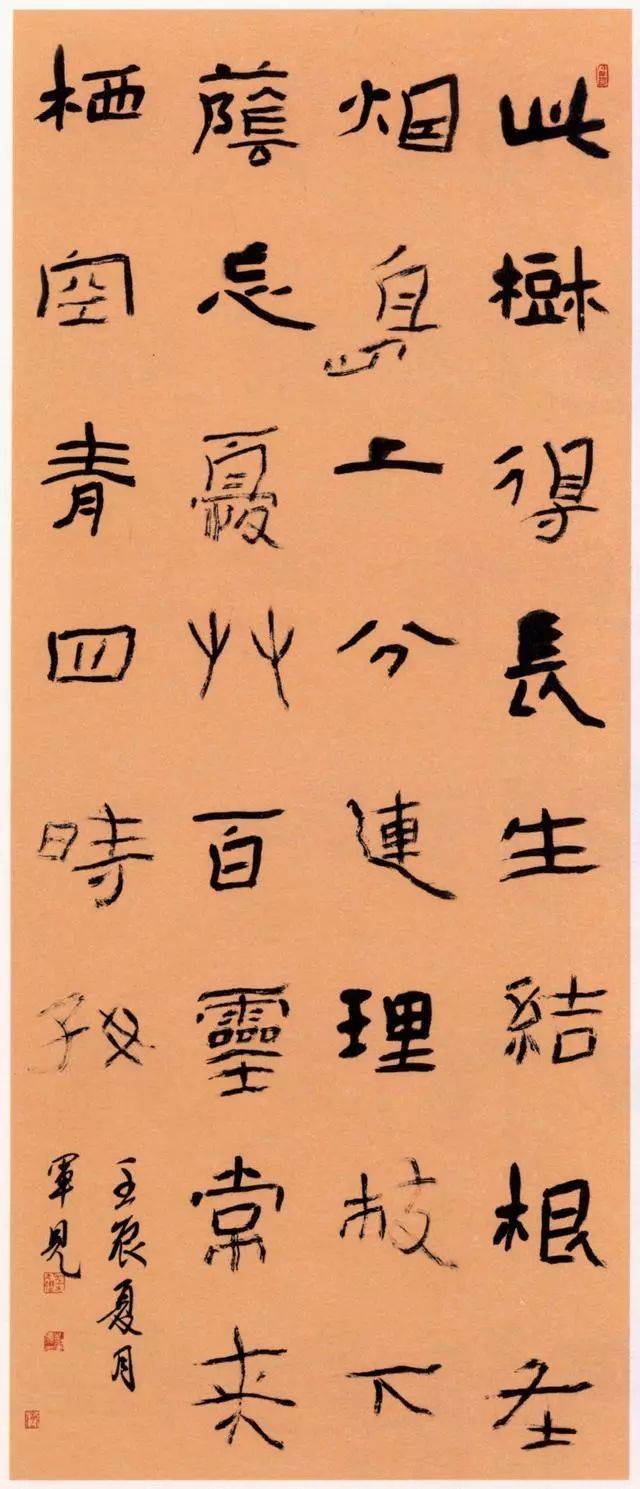 此樹得長生結根在
烟島上分連理枝下
蔭忘憂艸百靈常來
栖空青四時好
壬辰夏月
軍見